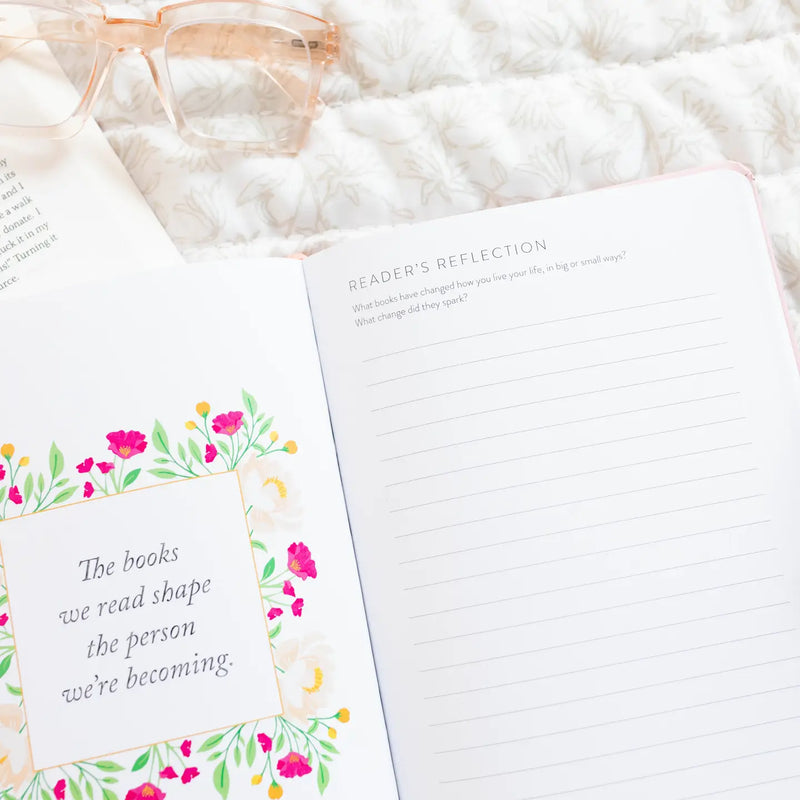 its
e a walk
donate. I
uck it in my
s!" Turning it
urce.
The books
we read shape
the person
we're becoming.
READER'S REFLECTION
What books have changed how you live your life, in big or small ways?
What change did they spark?